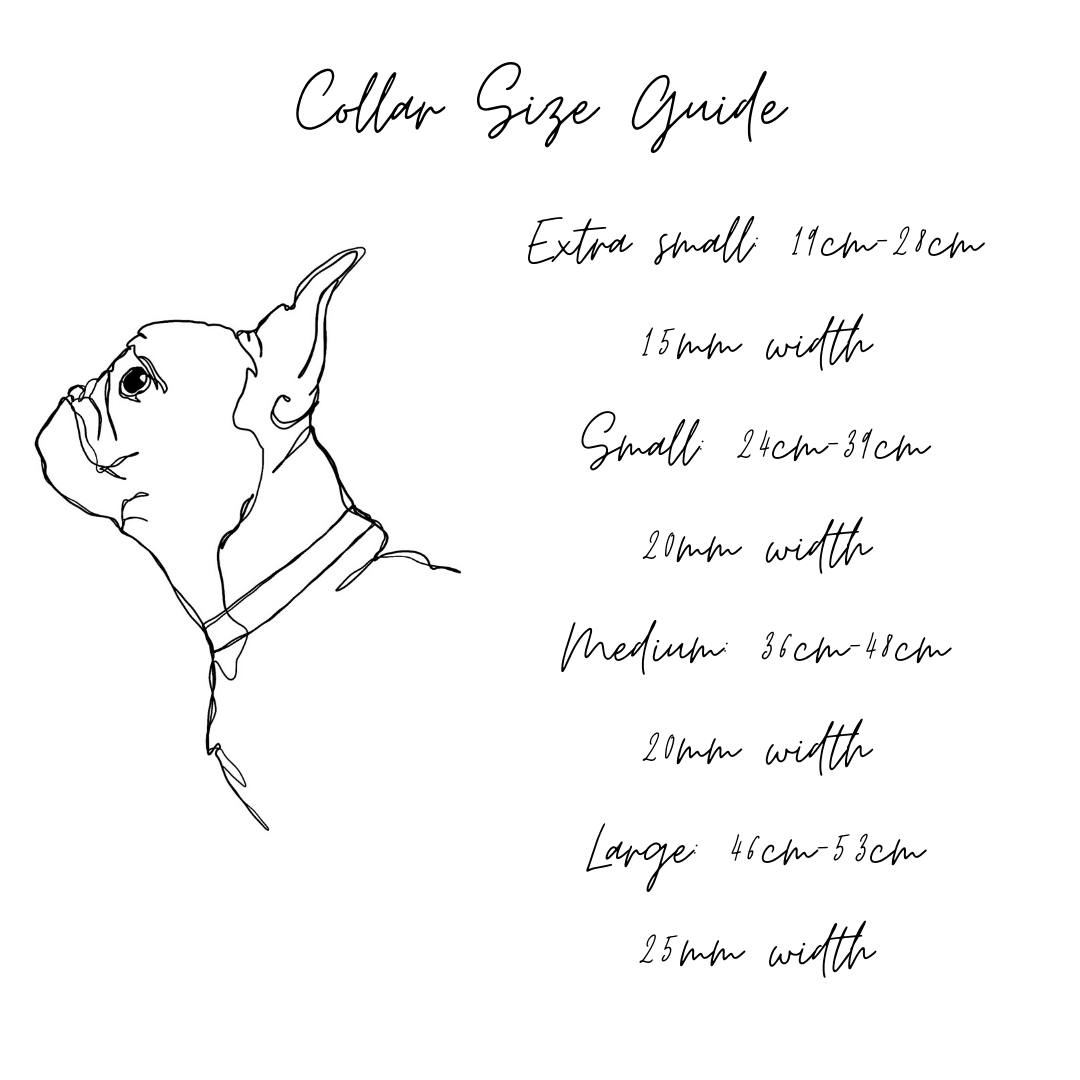 Collar Size Guide
Extra small: 19cm-28cm
15mm width
Small: 24cm-39cm
20mm width
Medium: 36cm-48cm
20mm width
Large: 46cm-53cm
25mm width